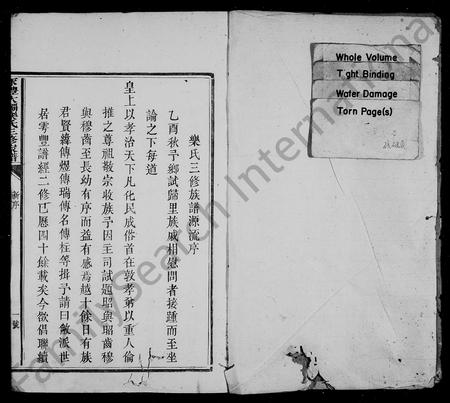 Whole Volume
Tight Binding
Water Damage
Torn Page(s)
樂氏三修族譜源流序
乙酉秋予鄉試歸里族戚相慰問者接踵而至坐
論之下每道
皇上以孝治天下凡化民成俗首在敦孝弟以重人倫
推之尊祖敬宗收族予因主司試題昭與昭齒穆
與穆齒至長幼有序而益有感焉越十餘日有族
君賢緯傳煜傳瑞傳名傳柱等揖予請曰敝派世
居雩豐譜經二修已歷四十餘載矣今欲倡聯續
新序
一號
FamilySearch International